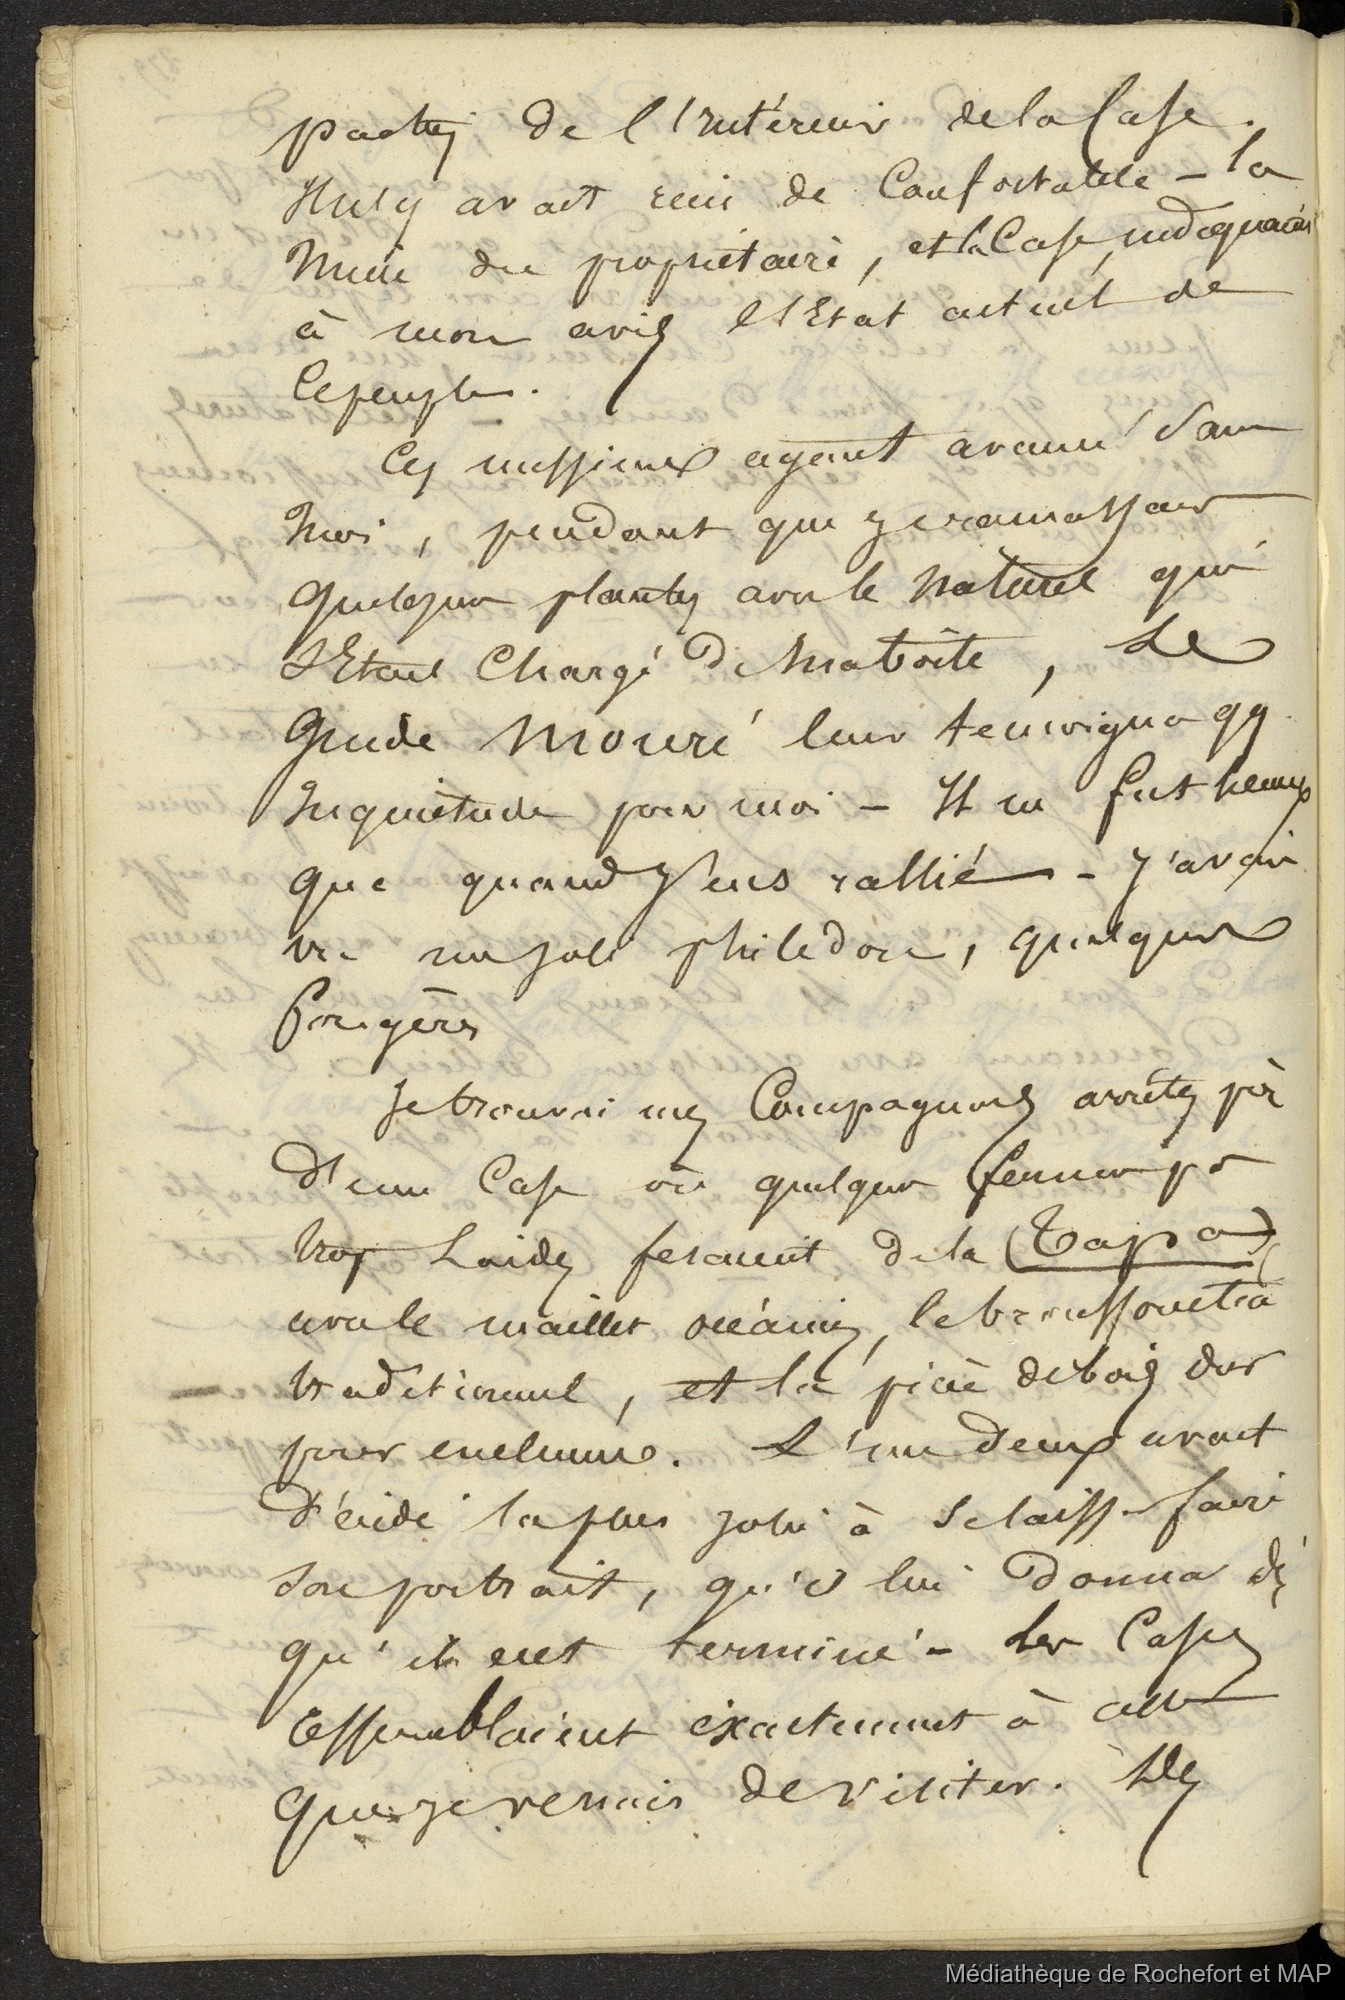 parties de l'Intérieur de la Case.
Il n'y avait rien de Confortable – la
Mine du propriétaire, et la Case, indiquaient
à mon avis l'Etat actuel de
Ce peuple.
Ces messieurs ayant avancé sans
moi, pendant que je ramassais
quelques plantes avec le naturel qui
s'Etait Chargé De ma boîte, Le
Guide Mouré leur témoigna qq
Inquiétude pour moi – Il ne fut heureux
que quand J'eus rallié – J'avais
vu un joli philédon, quelques
fougères
Je trouvai mes Compagnons arrêtés près
D'une Case où quelques femmes pas
trop Laides fesaient de la (Tapa)
avec le maillet océanien, le broussonetia
traditionnel, et la pièce de bois dur
pour enclume. L'un d'eux avait
Décidé la plus jolie à se laisser faire
Son portrait, qu'il lui Donna dès
qu'il eut terminé – Les Cases
ressemblaient exactement à celles
que je venais de visiter. Des
Médiathèque de Rochefort et MAP